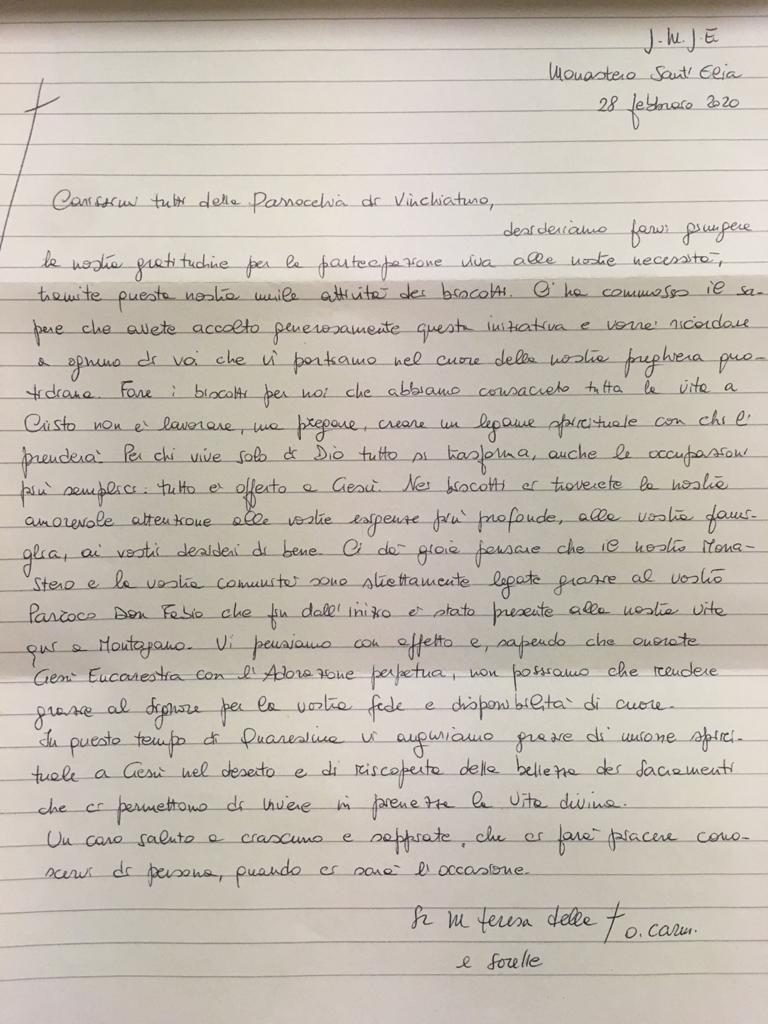 J.M.J.E
Monastero Sant' Elia
28 febbraio 2020
Carissimi tutti della Parrocchia di Vinchiaturo,
desideriamo farvi giungere
la nostra gratitudine per la partecipazione viva alle nostre necessità,
tramite questa nostra umile attività dei biscotti. Ci ha commosso il sa-
pere che avete accolto generosamente questa iniziativa e vorrei ricordare
a ognuno di voi che vi portiamo nel cuore della nostra preghiera quo-
tidiana. Fare i biscotti per noi che abbiamo consacrato tutta la vita a
Cristo non è lavorare, ma pregare, creare un legame spirituale con chi li
prenderà. Per chi vive solo di Dio tutto si trasforma, anche le occupazioni
più semplici: tutto è offerto a Gesù. Nei biscotti ci troverete la nostra
amorevole attenzione alle vostre esigenze più profonde, alla vostra fami-
glia, ai vostri desideri di bene. Ci dà gioia pensare che il nostro Mona-
stero e la vostra comunità sono strettamente legate grazie al vostro
Parroco Don Fabio che fin dall'inizio è stato presente alla nostra vita
qui a Montagano. Vi pensiamo con affetto e, sapendo che onorate
Gesù Eucarestia con l'Adorazione perpetua, non possiamo che rendere
grazie al Signore per la vostra fede e disponibilità di cuore.
In questo tempo di Quaresima vi auguriamo grazie di unione spiri-
tuale a Gesù nel deserto e di riscoperta della bellezza dei Sacramenti
che ci permettono di vivere in pienezza la vita divina.
Un caro saluto a ciascuno e sappiate, che ci farà piacere cono-
scervi di persona, quando ci sarà l'occasione.
Sr M Teresa della † o. carm.
e sorelle